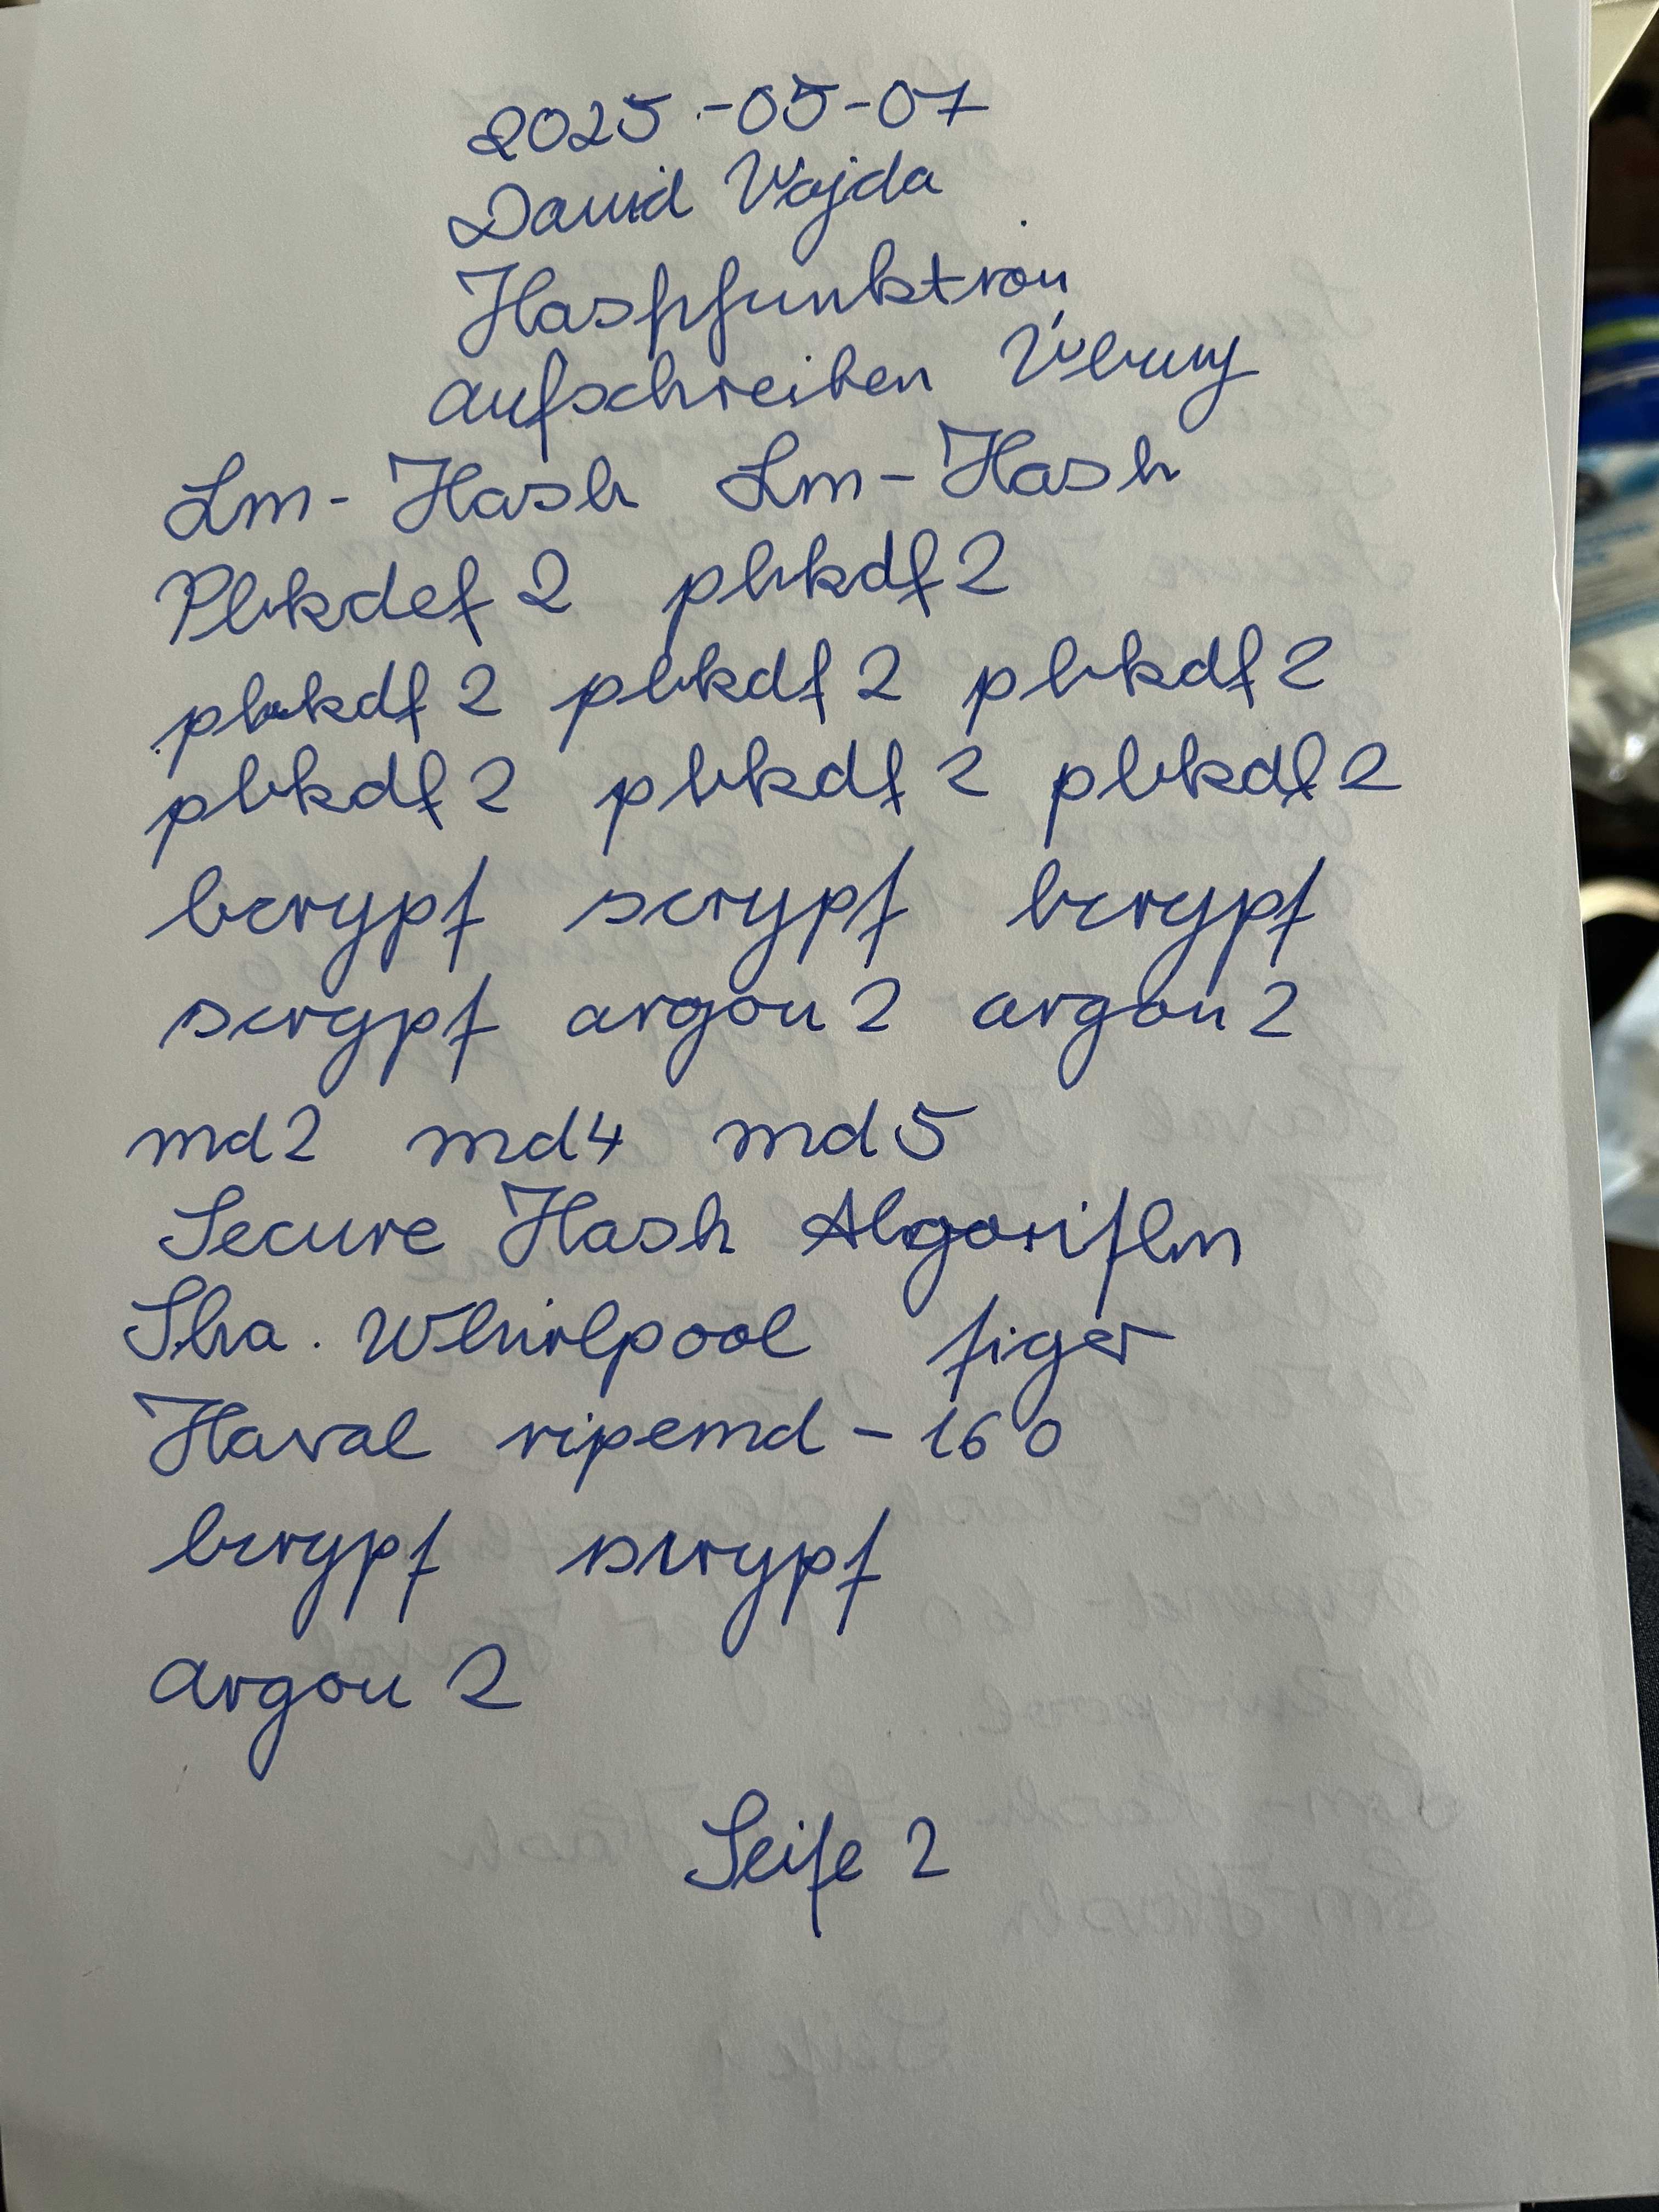 2025-05-07
David Vajda
Hashfunktion
aufschreiben Übung
Lm-Hash Lm-Hash
Pbkdef2 pbkdf2
pbkdf2 pbkdf2 pbkdf2
pbkdf2 pbkdf2 pbkdf2
bcrypt scrypt bcrypt
scrypt argon2 argon2
md2 md4 md5
Secure Hash Algorithm
Sha. Whirlpool tiger
Haval ripemd-160
bcrypt scrypt
argon2
Seite 2